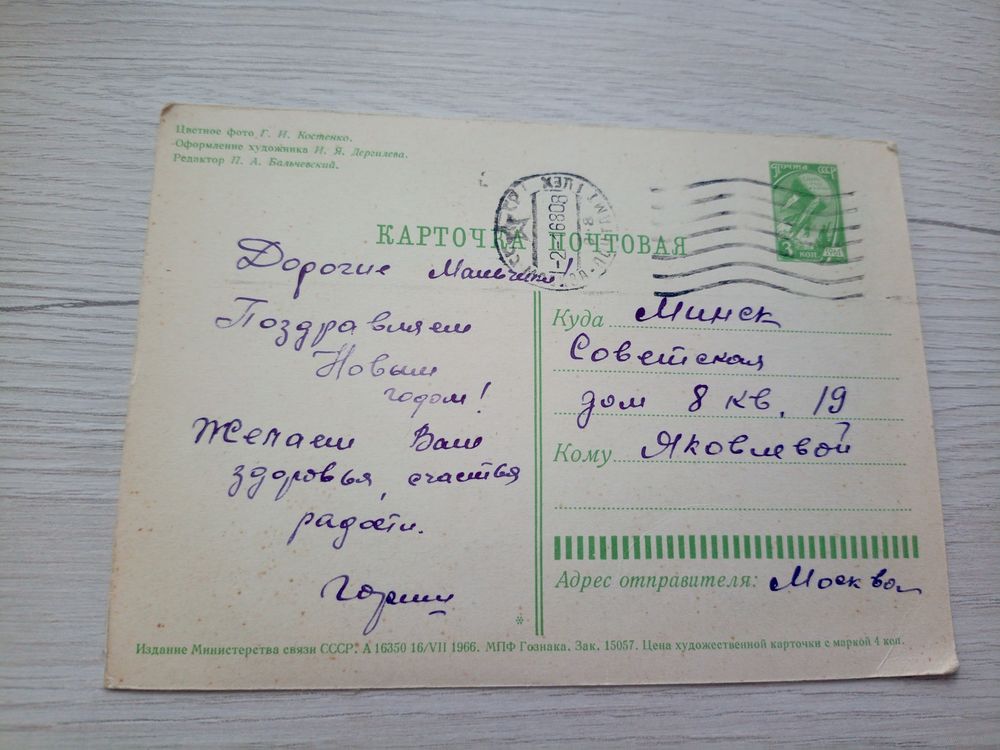 Цветное фото Г. И. Костенко.
Оформление художника И. Я. Дергилева.
Редактор П. А. Бальчевский.
ПОЧТА СССР
3 КОП
1961
КАРТОЧКА ПОЧТОВАЯ
Дорогие
Поздравляем
Новым
годом!
Желаем Вам
здоровья, счастья
радости.
Куда Минск
Советская
дом 8 кв. 19
Кому Яковлевой
Адрес отправителя: Москва
*
Издание Министерства связи СССР. А 16350 16/VII 1966. МПФ Гознака. Зак. 15057. Цена художественной карточки с маркой 4 коп.